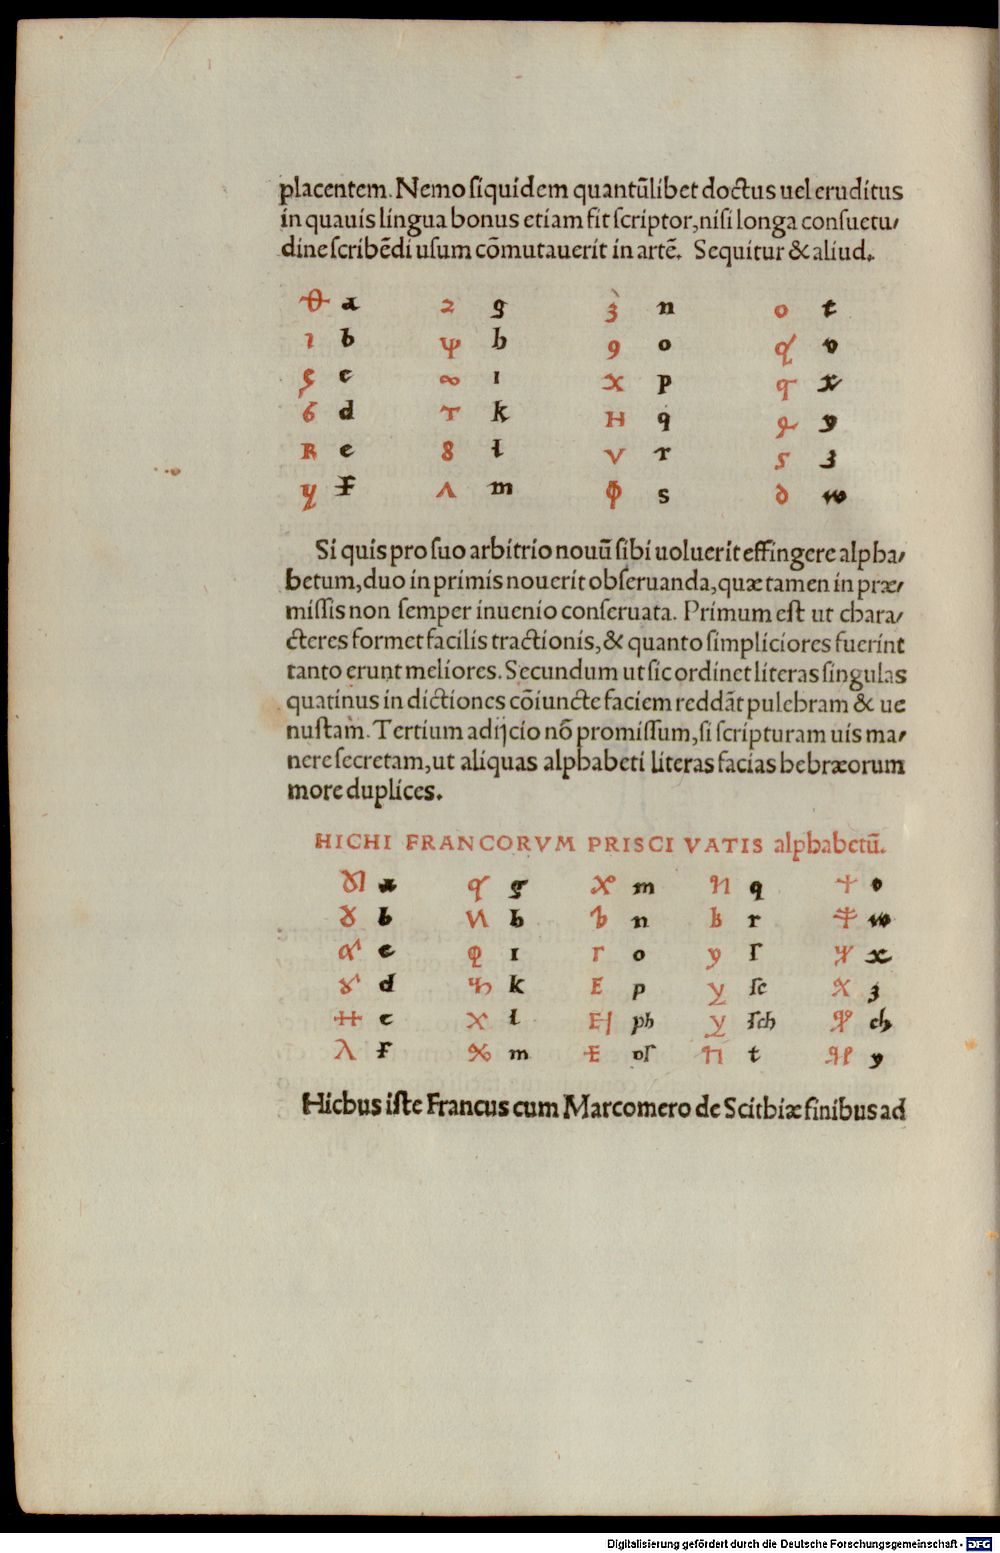 placentem. Nemo siquidem quantūlibet doctus uel eruditus
in quauis lingua bonus etiam fit scriptor, nisi longa consuetu/
dine scribēdi usum cōmutauerit in artē. Sequitur & aliud.
a g n t
b h o v
c i p x
d k q y
e l r z
f m s w
Si quis pro suo arbitrio nouū sibi uoluerit effingere alpha/
betum, duo in primis nouerit obseruanda, quæ tamen in præ/
missis non semper inuenio conseruata. Primum est ut chara/
cteres formet facilis tractionis, & quanto simpliciores fuerint
tanto erunt meliores. Secundum ut sic ordinet literas singulas
quatinus in dictiones cōiuncte faciem reddāt pulchram & ue
nustam. Tertium adijcio nō promissum, si scripturam uis ma/
nere secretam, ut aliquas alphabeti literas facias hebræorum
more duplices.
HICHI FRANCORVM PRISCI VATIS alphabetū.
a g m q v
b h n r w
c i o ſ x
d k p ſc z
e l ph ſch ch
f m t y
Hichus iste Francus cum Marcomero de Scithiæ finibus ad
Digitalisierung gefördert durch die Deutsche Forschungsgemeinschaft - DFG